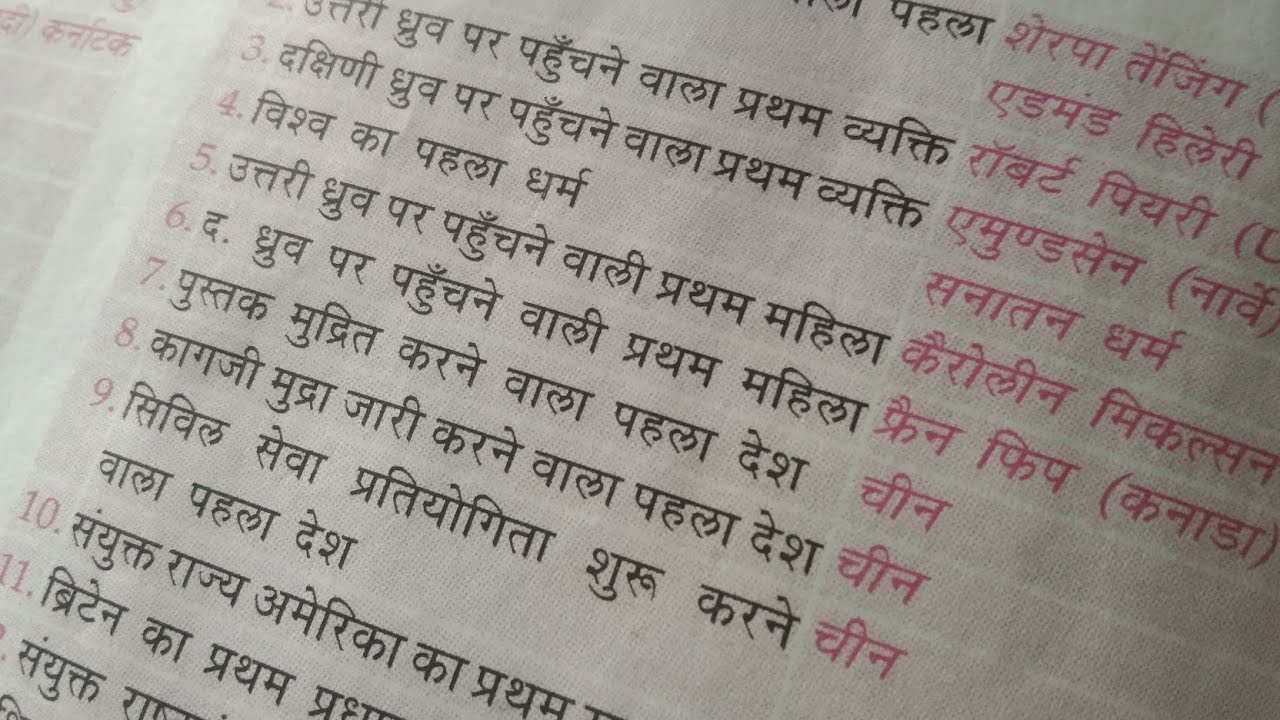 दी) कर्नाटक
पहला शेरपा तेंजिंग (
एडमंड हिलेरी
2. उत्तरी ध्रुव पर पहुँचने वाला प्रथम व्यक्ति रॉबर्ट पियरी (U
3. दक्षिणी ध्रुव पर पहुँचने वाला प्रथम व्यक्ति एमुण्डसेन (नार्वे)
4. विश्व का पहला धर्म सनातन धर्म
5. उत्तरी ध्रुव पर पहुँचने वाली प्रथम महिला कैरोलीन मिकल्सन
6. द. ध्रुव पर पहुँचने वाली प्रथम महिला फ्रैन फिप (कनाडा)
7. पुस्तक मुद्रित करने वाला पहला देश चीन
8. कागजी मुद्रा जारी करने वाला पहला देश चीन
9. सिविल सेवा प्रतियोगिता शुरू करने चीन
वाला पहला देश
10. संयुक्त राज्य अमेरिका का प्रथम
11. ब्रिटेन का प्रथम
संयुक्त